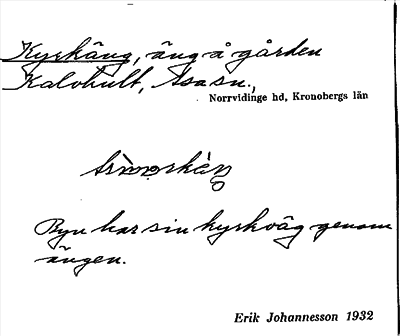 Kyrkäng, äng å gården
Kalvhult, Asa sn.,
Norrvidinge hd, Kronobergs län
Byn har sin kyrkväg genom
ängen.
Erik Johannesson 1932